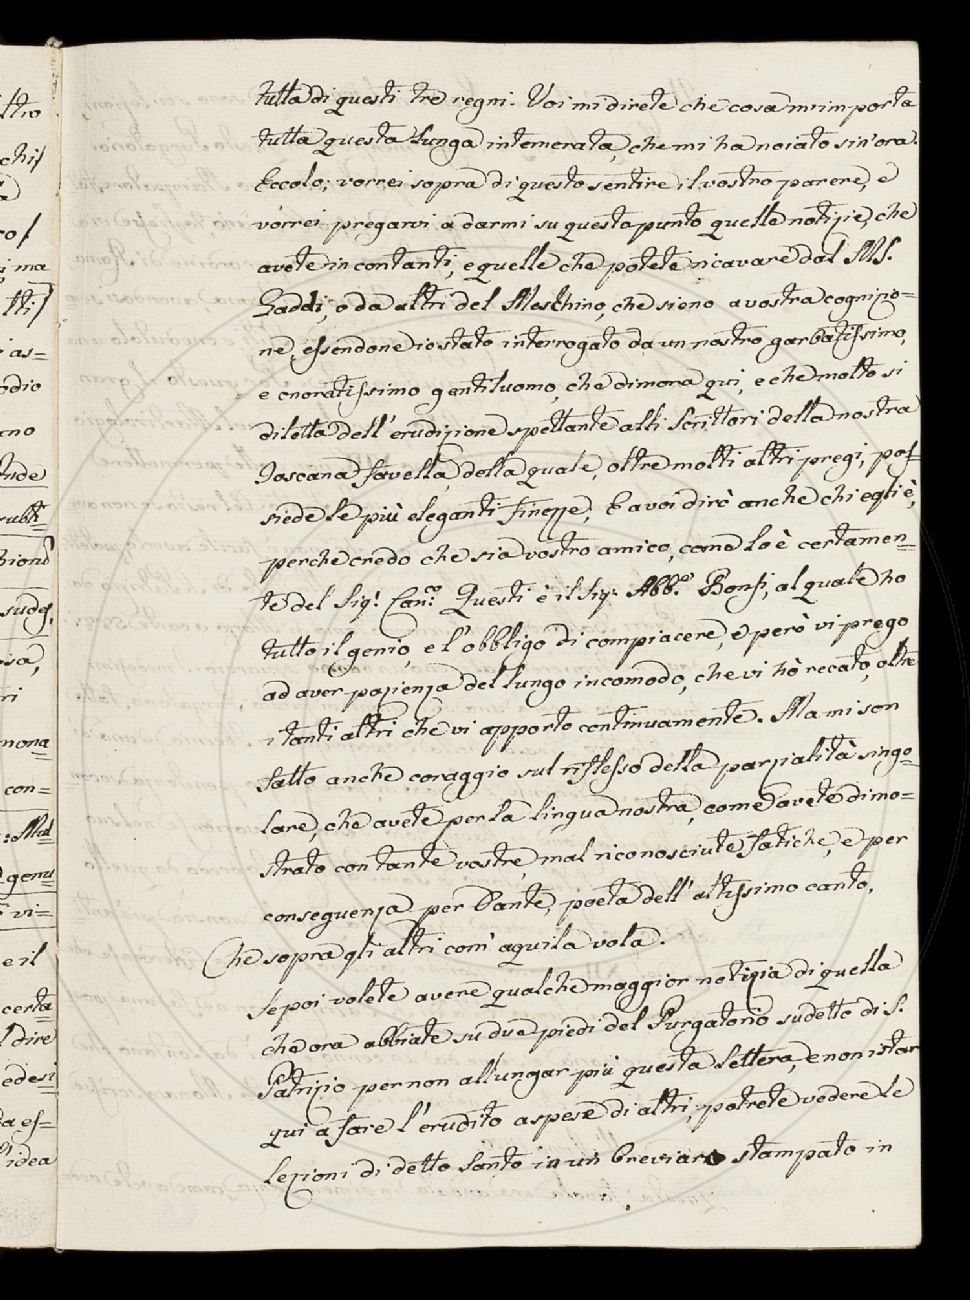 tutta di questi tre regni. Voi mi direte che cosa mi importa
tutta questa lunga intemerata, che mi ha noiato sin'ora.
Eccolo; vorrei sopra di questo sentire il vostro parere, e
vorrei pregarvi a darmi su questo punto quelle notizie, che
avete in contanti, e quelle che potete ricavare dal MS.
Gaddi, o da altri del Meschino, che sieno a vostra cognizio=
ne, essendone io stato interrogato da un nostro garbatissimo,
e onoratissimo gentiluomo, che dimora qui, e che molto si
diletta dell'erudizione spettante alli Scrittori della nostra
Toscana favella, della quale, oltre molti altri pregi, pos=
siede le più eleganti finezze, E a voi dirò anche chi egli è,
perche credo che sia vostro amico, come lo è certamen=
te del Sig.r Can.co Questi è il Sig.r Abb.e Bonsi, al quale ho
tutto il genio, e l'obbligo di compiacere, e però vi prego
ad aver pazienza del lungo incomodo, che vi hò recato, oltre
i tanti altri che vi apporto continuamente. Ma mi son
fatto anche coraggio sul riflesso della parzialità singo=
lare, che avete per la lingua nostra, come avete dimo=
strato con tante vostre, mal riconosciute fatiche, e per
conseguenza per Dante, poeta dell'altissimo canto,
Che sopra gli altri com' aquila vola.
Se poi volete avere qualche maggior notizia di quella
che ora abbiate su due piedi del Purgatorio sudetto di S.
Patrizio per non allungar più questa lettera, e non istar
qui a fare l'erudito a spese di altri, potrete vedere le
lezioni di detto Santo in un breviario stampato in